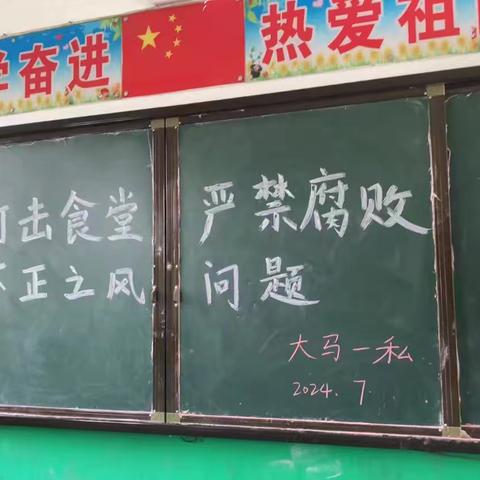 学奋进
热爱祖
打击食堂
不正之风
严禁腐败
问题
大马一私
2024.7